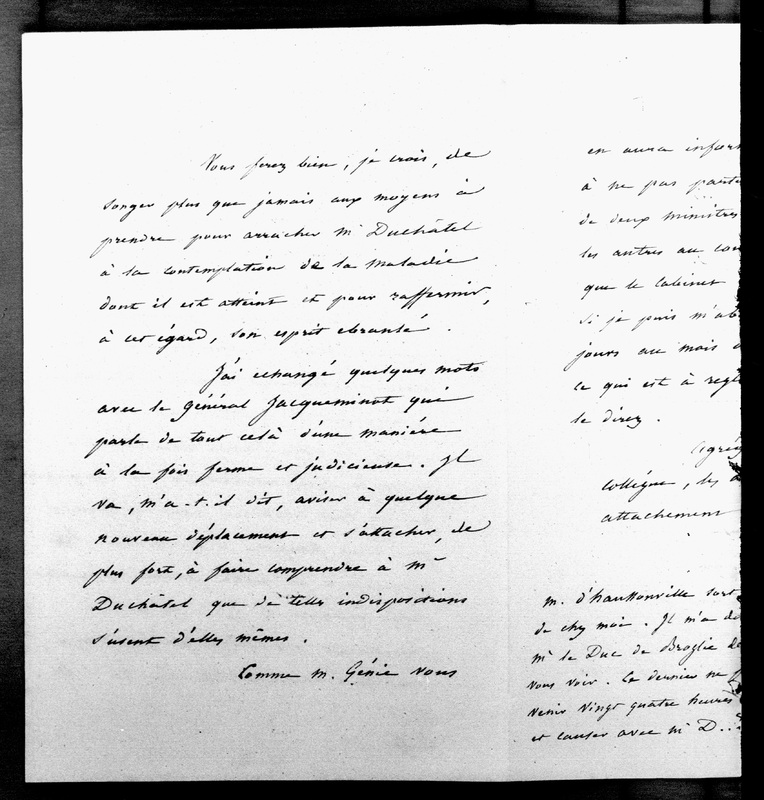 Vous ferez bien, je crois, de
songer plus que jamais aux moyens à
prendre pour arracher Mr Duchâtel
à la contemplation de la maladie
dont il est atteint et pour raffermir,
à cet égard, son esprit ebranlé.
J'ai echangé quelques mots
avec le Général Jacqueminot qui
parle de tout celà d'une manière
à la fois ferme et judicieuse. Il
va, m'a-t-il dit, aviser à quelque
nouveau déplacement et s'attacher, de
plus fort, à faire comprendre à Mr
Duchâtel que de telles indispositions
s'usent d'elles mêmes.
Comme M. Génie vous
en aura inform
à ne pas
de deux ministres
les autres au
que le Cabinet
si je puis m'ab
jours au mois
ce qui est à regl
le direz.
Agré
collégue, les
attachement
M. d'Haussonville sort
de chez moi. Il m'a
Mr le Duc de Broglie
vous voir. Ce dernier ne
venir vingt quatre heures
et causer avec Mr D...